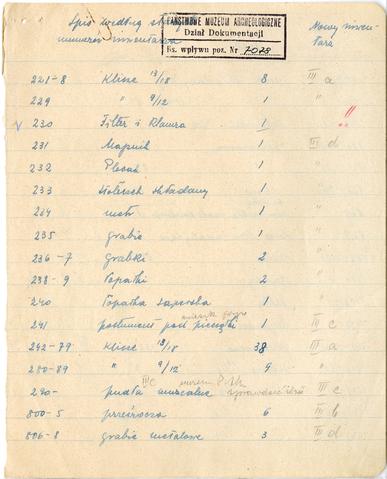 Spis według
numerów inwentarza
PAŃSTWOWE MUZEUM ARCHEOLOGICZNE
Dział Dokumentacji
Ks. wpływu poz. Nr 7078
Nowy inwen-
tarz
221-8 Klisze 13/18 8 III a
229 " 9/12 1 "
230 Filter i Klamra 1 !!
231 Mapnik 1 III d
232 Plecak 1 "
233 składany 1 "
234 metr 1 "
235 grabie 1 "
236-7 Grabki 2 "
238-9 Łopatki 2 "
240 Łopatka saperska 1 "
241 postument pod pieczątki 1 III c
242-79 Klisze 13/18 38 III a
280-89 " 9/12 9 "
290- III c III c
800-5 przeźrocza 6 III b
806-8 grabie metalowe 3 III d